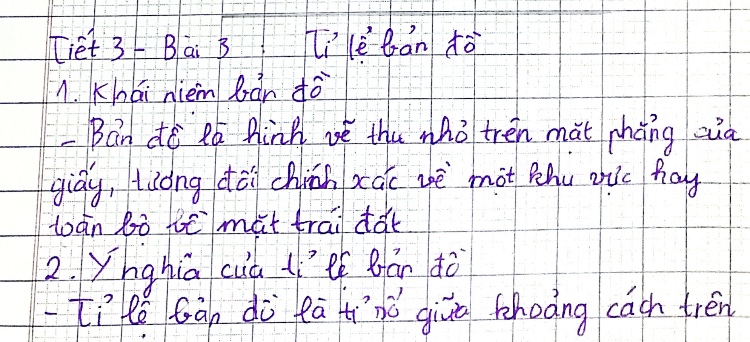 Tiết 3 - Bài 3 : Tỉ lệ bản đồ
1. Khái niệm bản đồ
- Bản đồ là hình vẽ thu nhỏ trên mặt phẳng của
giấy, tương đối chính xác về một khu vực hay
toàn bộ bề mặt trái đất
2. Ý nghĩa của tỉ lệ bản đồ
- Tỉ lệ bản đồ là tỉ số giữa khoảng cách trên